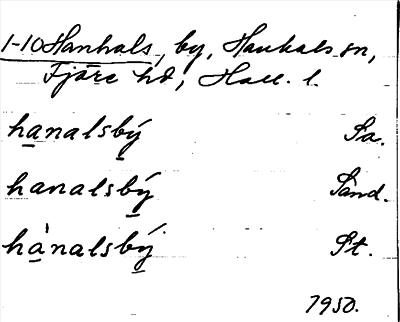 1-10 Hanhals, by, Hanhals sn,
Fjäre hd, Hall. l.
hanalsbý Sa.
hanalsbý Sand.
hànalsbý St.
1950.